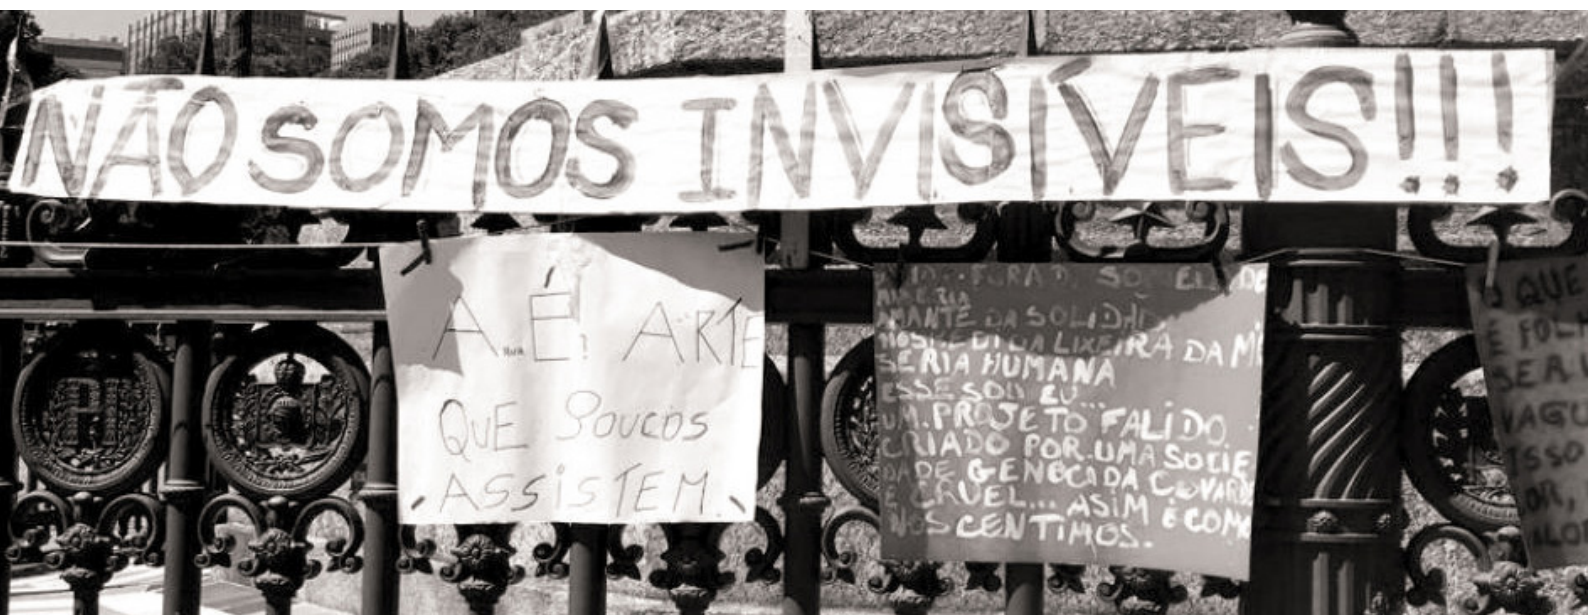 NÃO SOMOS INVISÍVEIS!!!
A RUA É! ARTE
QUE POUCOS
ASSISTEM.
MISERIA
AMANTE DA SOLIDÃO
HOSPEDI DA LIXEIRA DA MI
SERIA HUMANA
ESSE SOU EU
UM PROJETO... FALIDO
CRIADO POR UMA SOCIE
DADE GENOCIDA COVARDE
E CRUEL... ASIM É COMO
NOS CENTIMOS.
O QUE
É FOL
SEA
VAGU
ISSO
OR,